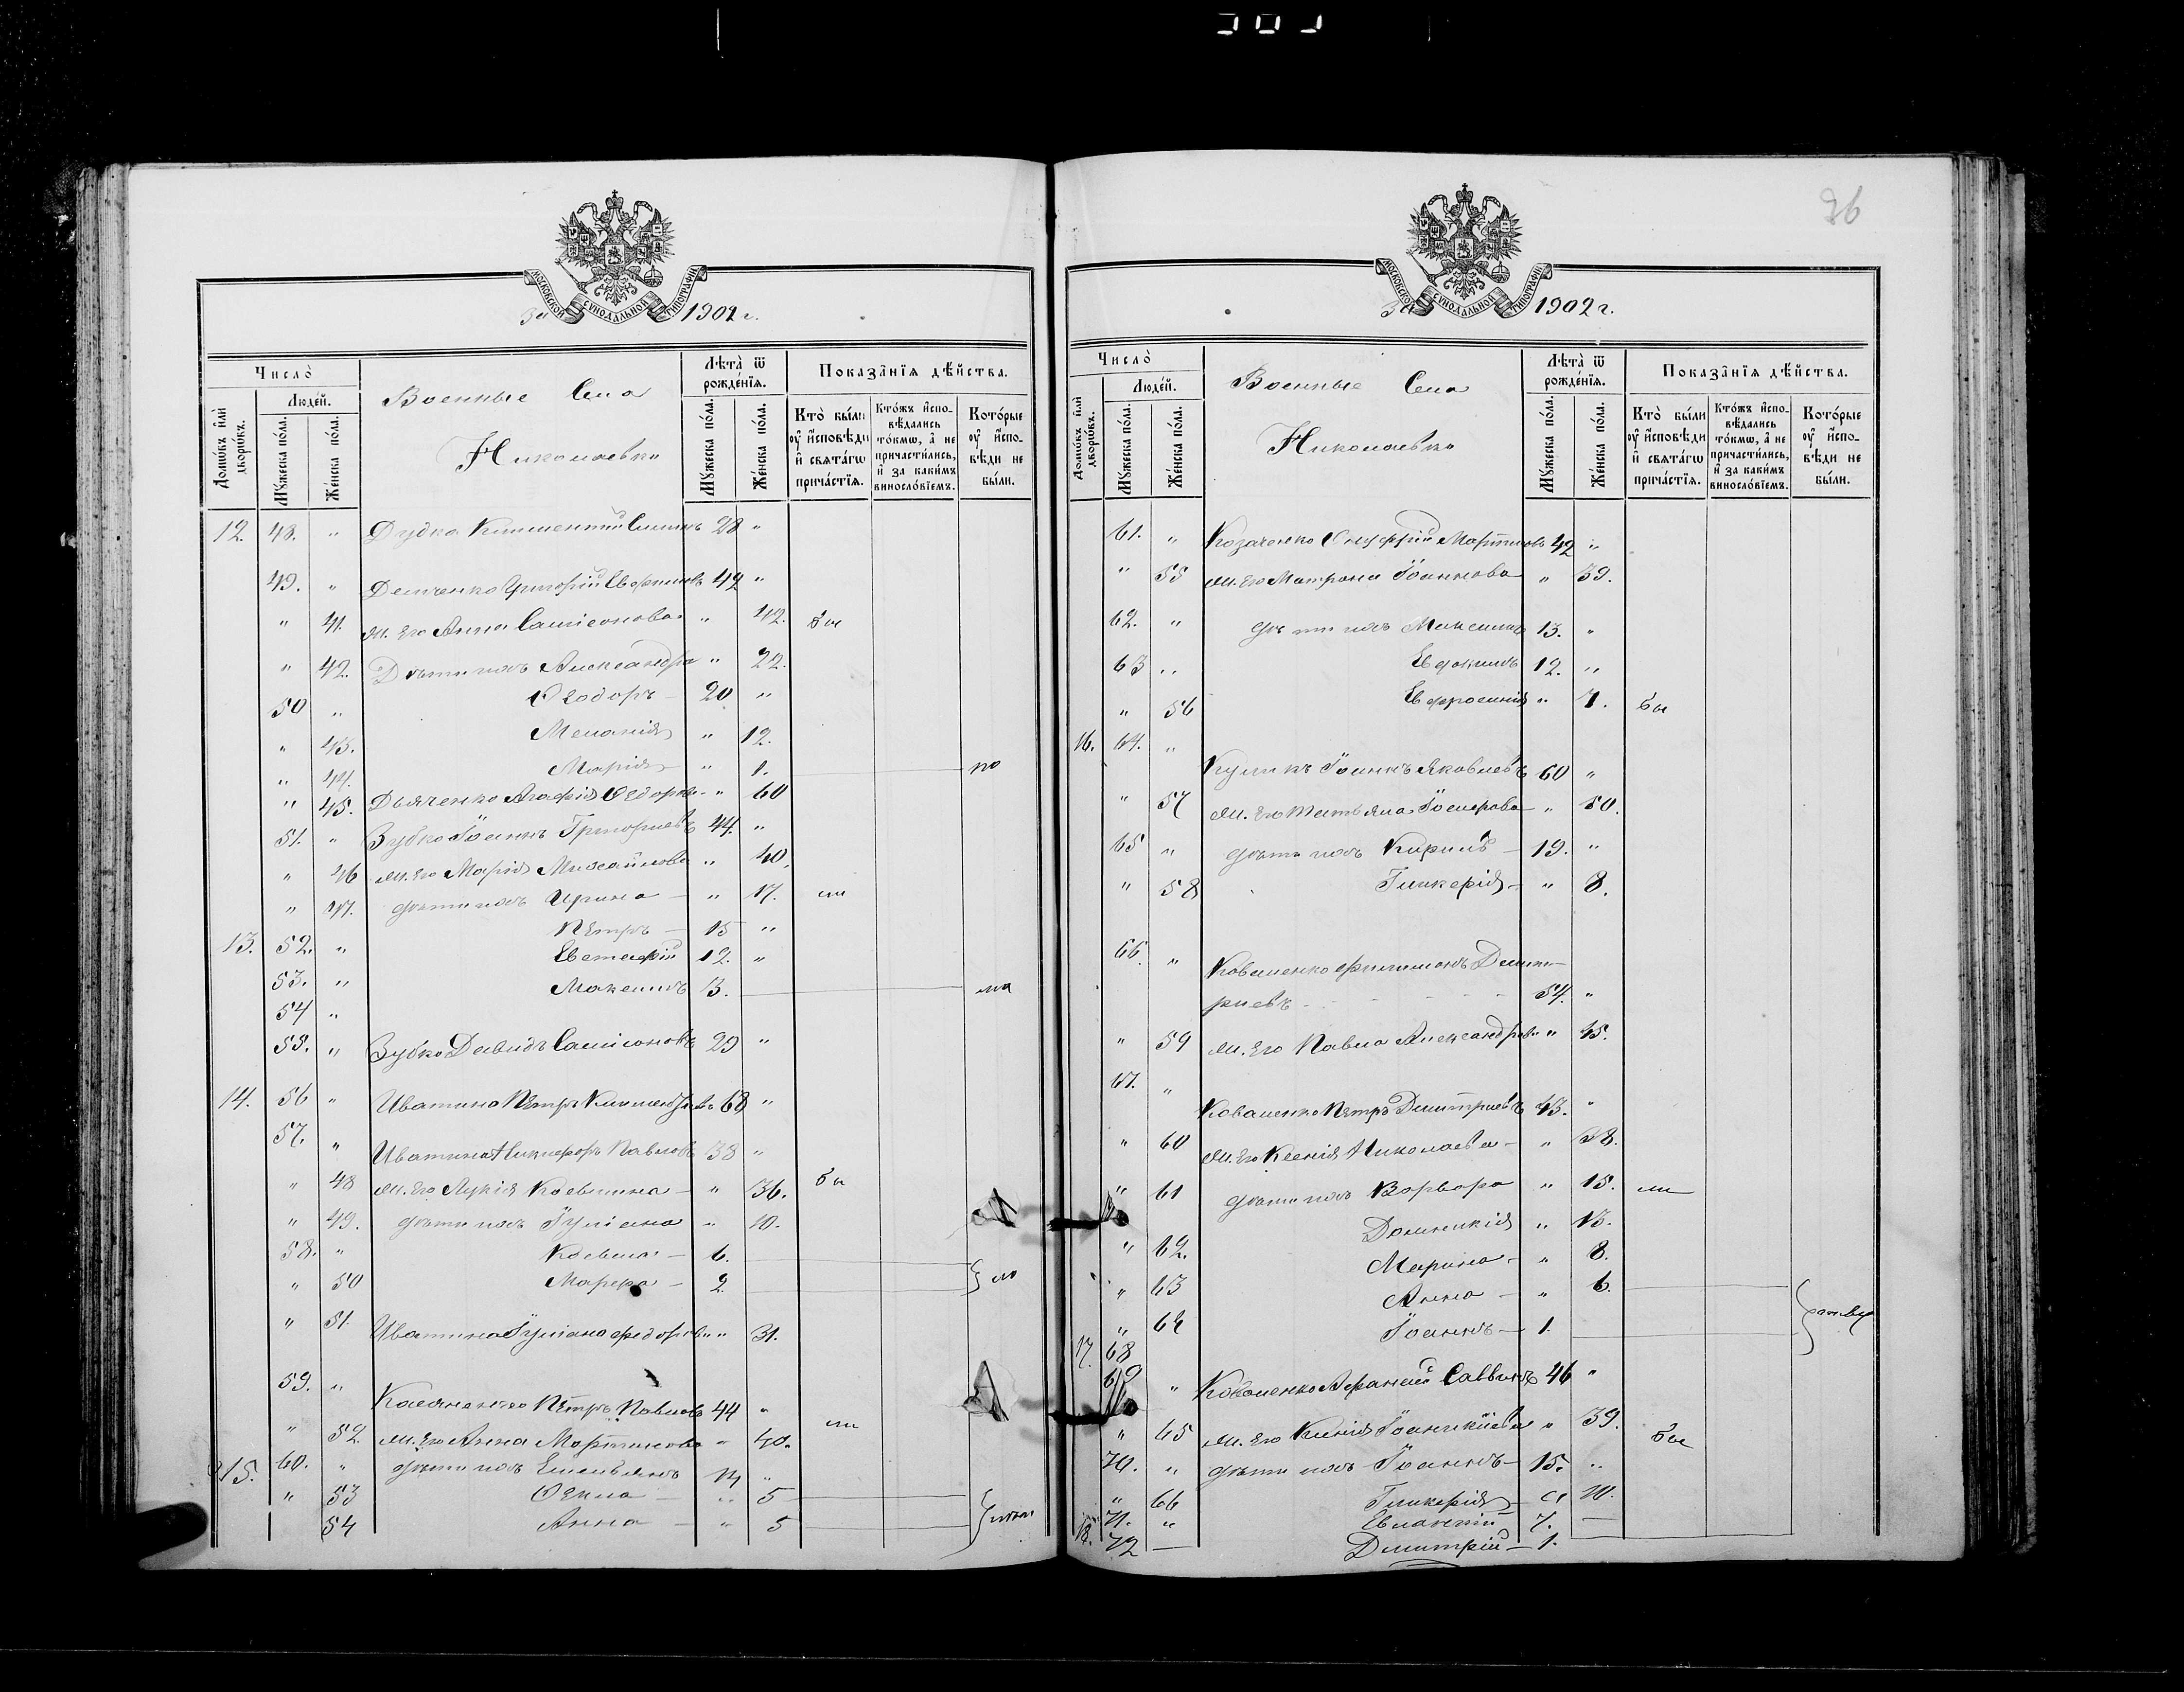 26
МОСКОВСКОЙ СѴНОДАЛЬНОЙ ТИПОГРАФІИ
За 1902 г.
Число̀
Людéй.
Домѡ́въ и҆лѝ дворѡ́въ.
Мꙋ́жеска по́ла.
Же́нска по́ла.
Военные Села
Николаевки
Лѣта̀ ѿ рожде́нїѧ.
Мꙋ́жеска по́ла.
Же́нска по́ла.
Показа̑нїѧ дѣ́йства.
Кто̀ бы́ли оу҆ и҆сповѣди и҆ свѧта́гѡ прича́стїѧ.
Кто́жъ и҆спо-вѣдались то́кмѡ, а҆ не причасти́лись, и҆ за каки́мъ виносло́вїемъ.
Кото́рые оу҆ и҆спо-вѣди не бы́ли.
12. 48. " Дудка Климентій 28 "
49. " Демченко Григорій 42 "
" 41. ж. его Анна Самсонова " 42. бы
" 42. Дѣти ихъ Александра " 22.
50 " Ѳеодоръ — 20 "
" 43. Меланія " 12.
" 44. Марія — " 1. но
" 45. Дьяченко Агафія Ѳедорова " 60
51. " Зубко Іоаннъ Григорьевъ 44. "
" 46 ж. его Марія Михайлова " 40.
" 47. дѣти ихъ Ирина — " 17. ли
Петръ — 15 "
13. 52. " Евстафій 12. "
53. " Максимъ 3.
54 "
55. " Зубко Давидъ Самсоновъ 29 "
14. 56 " Иватина Петръ 68 "
57. " Иватина Никифоръ Павловъ 38 "
" 48 ж. его Лукія " 36. бы
" 49. дѣти ихъ Іуліана " 10.
58. " — 6.
" 50 Марфа — 2.
" 51. Иватина Іуліана Федорова " 31.
59. " Касяненко Петръ Павловъ 44 "
" 52. ж. его Анна Мартинова " 40. ли
15. 60. " дѣти ихъ Емельянъ 14 "
" 53 Ѳекла — " 5
54 Анна — " 5
За 1902 г.
Число̀
Людéй.
Домѡ́въ и҆лѝ дворѡ́въ.
Мꙋ́жеска по́ла.
Же́нска по́ла.
Военные Села
Николаевки
Лѣта̀ ѿ рожде́нїѧ.
Мꙋ́жеска по́ла.
Же́нска по́ла.
Показа̑нїѧ дѣ́йства.
Кто̀ бы́ли оу҆ и҆сповѣди и҆ свѧта́гѡ прича́стїѧ.
Кто́жъ и҆спо-вѣдались то́кмѡ, а҆ не причасти́лись, и҆ за каки́мъ виносло́вїемъ.
Кото́рые оу҆ и҆спо-вѣди не бы́ли.
61. " Козаченко Онуфрій Мартиновъ 42 "
" 55 ж. его Матрона Іоаннова " 39.
62. " дѣти ихъ Максимъ 13. "
63 " Евдокимъ 12. "
" 56 Евфросинія " 7. бы
16. 64. "
Куликъ Іоаннъ Яковлевъ 60 "
" 57 ж. его Татьяна Іосифова " 50.
65 " дѣти ихъ Кирилъ — 19. "
" 58 Гликерія — " 8.
66. " Коваленко Филимонъ Димит-
ріевъ 54. "
" 59 ж. его Павла Александрова " 45.
67. "
Коваленко Петръ Димитріевъ 43. "
" 60 ж. его Ксенія Николаева — " 38.
" 61 дѣти ихъ Варвара " 15. ли
Домникія " 13.
" 62. Марина — " 8.
" 63 Анна — " 6.
" 64 Іоаннъ — 1.
17. 68
69 " Коваленко Афанасій Саввинъ 46 "
" 65 ж. его Іоаникіева " 39. бы
70. " дѣти ихъ Іоаннъ — 15. "
" 66 Гликерія — " 10.
71. " Евлампій 7. —
18. 72 — Димитрій — 1.